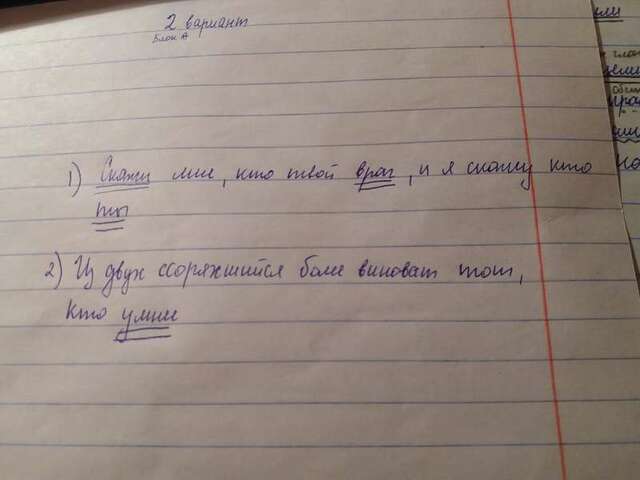 2 вариант
Блок А
1) Скажи мне, кто твой враг, и я скажу кто
ты
2) Из двух ссорящийся более виноват тот,
кто умнее